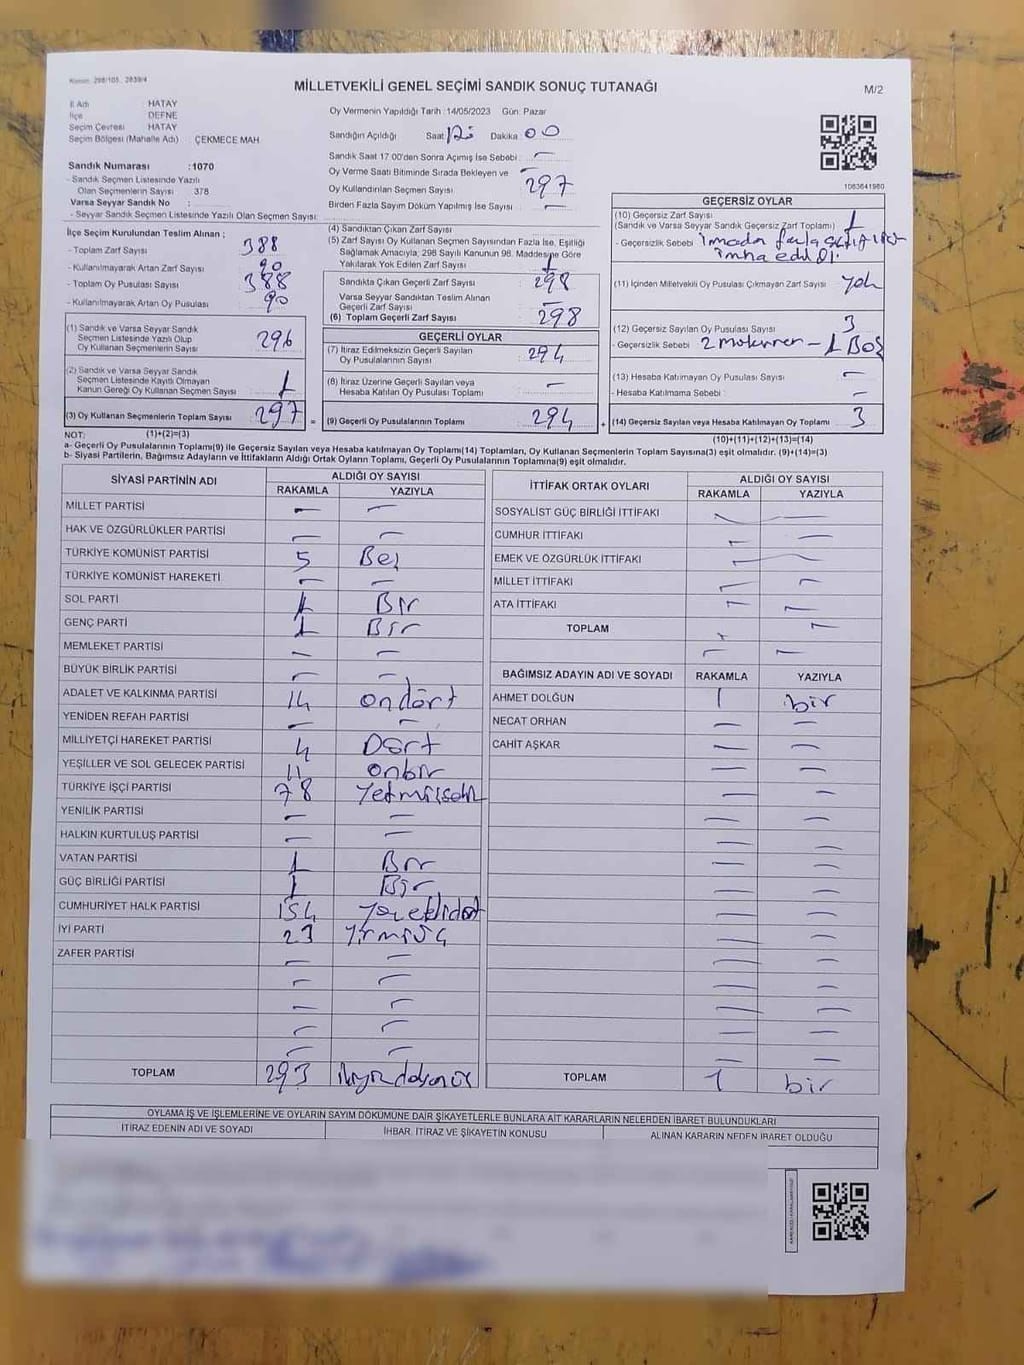 Kanun: 298/105, 2839/4
MİLLETVEKİLİ GENEL SEÇİMİ SANDIK SONUÇ TUTANAĞI
M/2
İl Adı : HATAY
İlçe : DEFNE
Seçim Çevresi : HATAY
Seçim Bölgesi (Mahalle Adı) : ÇEKMECE MAH
Sandık Numarası :1070
- Sandık Seçmen Listesinde Yazılı
Olan Seçmenlerin Sayısı : 378
Varsa Seyyar Sandık No :
- Seyyar Sandık Seçmen Listesinde Yazılı Olan Seçmen Sayısı:
Oy Vermenin Yapıldığı Tarih :14/05/2023 Gün: Pazar
Sandığın Açıldığı Saat Dakika 00
Sandık Saat 17:00'den Sonra Açılmış İse Sebebi: —
Oy Verme Saati Bitiminde Sırada Bekleyen ve —
Oy Kullandırılan Seçmen Sayısı 297
Birden Fazla Sayım Döküm Yapılmış İse Sayısı —
1083641980
İlçe Seçim Kurulundan Teslim Alınan ;
- Toplam Zarf Sayısı 388
- Kullanılmayarak Artan Zarf Sayısı 90
- Toplam Oy Pusulası Sayısı 388
- Kullanılmayarak Artan Oy Pusulası 90
(1) Sandık ve Varsa Seyyar Sandık
Seçmen Listesinde Yazılı Olup
Oy Kullanan Seçmenlerin Sayısı 296
(2) Sandık ve Varsa Seyyar Sandık
Seçmen Listesinde Kayıtlı Olmayan
Kanun Gereği Oy Kullanan Seçmen Sayısı 1
(3) Oy Kullanan Seçmenlerin Toplam Sayısı 297
(4) Sandıktan Çıkan Zarf Sayısı
(5) Zarf Sayısı Oy Kullanan Seçmen Sayısından Fazla İse, Eşitliği
Sağlamak Amacıyla; 298 Sayılı Kanunun 98. Maddesine Göre
Yakılarak Yok Edilen Zarf Sayısı 1
Sandıkta Çıkan Geçerli Zarf Sayısı 298
Varsa Seyyar Sandıktan Teslim Alınan
Geçerli Zarf Sayısı —
(6) Toplam Geçerli Zarf Sayısı 298
GEÇERLİ OYLAR
(7) İtiraz Edilmeksizin Geçerli Sayılan
Oy Pusulalarının Sayısı 294
(8) İtiraz Üzerine Geçerli Sayılan veya
Hesaba Katılan Oy Pusulası Toplamı —
= (9) Geçerli Oy Pusulalarının Toplamı 294
GEÇERSİZ OYLAR
(10) Geçersiz Zarf Sayısı 1
(Sandık ve Varsa Seyyar Sandık Geçersiz Zarf Toplamı)
- Geçersizlik Sebebi fazla
imha edildi.
(11) İçinden Milletvekili Oy Pusulası Çıkmayan Zarf Sayısı yok
(12) Geçersiz Sayılan Oy Pusulası Sayısı 3
- Geçersizlik Sebebi 2 — 1 Boş
(13) Hesaba Katılmayan Oy Pusulası Sayısı —
- Hesaba Katılmama Sebebi : —
+ (14) Geçersiz Sayılan veya Hesaba Katılmayan Oy Toplamı 3
NOT: (1)+(2)=(3)
(10)+(11)+(12)+(13)=(14)
a- Geçerli Oy Pusulalarının Toplamı(9) ile Geçersiz Sayılan veya Hesaba katılmayan Oy Toplamı(14) Toplamları, Oy Kullanan Seçmenlerin Toplam Sayısına(3) eşit olmalıdır. (9)+(14)=(3)
b- Siyasi Partilerin, Bağımsız Adayların ve İttifakların Aldığı Ortak Oyların Toplamı, Geçerli Oy Pusulalarının Toplamına(9) eşit olmalıdır.
SİYASİ PARTİNİN ADI ALDIĞI OY SAYISI
RAKAMLA YAZIYLA
MİLLET PARTİSİ — —
HAK VE ÖZGÜRLÜKLER PARTİSİ — —
TÜRKİYE KOMÜNİST PARTİSİ 5 Beş
TÜRKİYE KOMÜNİST HAREKETİ — —
SOL PARTİ 1 Bir
GENÇ PARTİ 1 Bir
MEMLEKET PARTİSİ — —
BÜYÜK BİRLİK PARTİSİ — —
ADALET VE KALKINMA PARTİSİ 14 ondört
YENİDEN REFAH PARTİSİ — —
MİLLİYETÇİ HAREKET PARTİSİ 4 Dört
YEŞİLLER VE SOL GELECEK PARTİSİ 11 onbir
TÜRKİYE İŞÇİ PARTİSİ 78 Yetmişsekiz
YENİLİK PARTİSİ — —
HALKIN KURTULUŞ PARTİSİ — —
VATAN PARTİSİ 1 Bir
GÜÇ BİRLİĞİ PARTİSİ 1 Bir
CUMHURİYET HALK PARTİSİ 154 Yüzellidört
İYİ PARTİ 23 Yirmiüç
ZAFER PARTİSİ — —
TOPLAM 293 ikiyüzdoksanüç
İTTİFAK ORTAK OYLARI ALDIĞI OY SAYISI
RAKAMLA YAZIYLA
SOSYALİST GÜÇ BİRLİĞİ İTTİFAKI — —
CUMHUR İTTİFAKI — —
EMEK VE ÖZGÜRLÜK İTTİFAKI — —
MİLLET İTTİFAKI — —
ATA İTTİFAKI — —
TOPLAM — —
BAĞIMSIZ ADAYIN ADI VE SOYADI RAKAMLA YAZIYLA
AHMET DOLĞUN 1 bir
NECAT ORHAN — —
CAHİT AŞKAR — —
TOPLAM 1 bir
OYLAMA İŞ VE İŞLEMLERİNE VE OYLARIN SAYIM DÖKÜMÜNE DAİR ŞİKAYETLERLE BUNLARA AİT KARARLARIN NELERDEN İBARET BULUNDUKLARI
İTİRAZ EDENİN ADI VE SOYADI İHBAR, İTİRAZ VE ŞİKAYETİN KONUSU ALINAN KARARIN NEDEN İBARET OLDUĞU